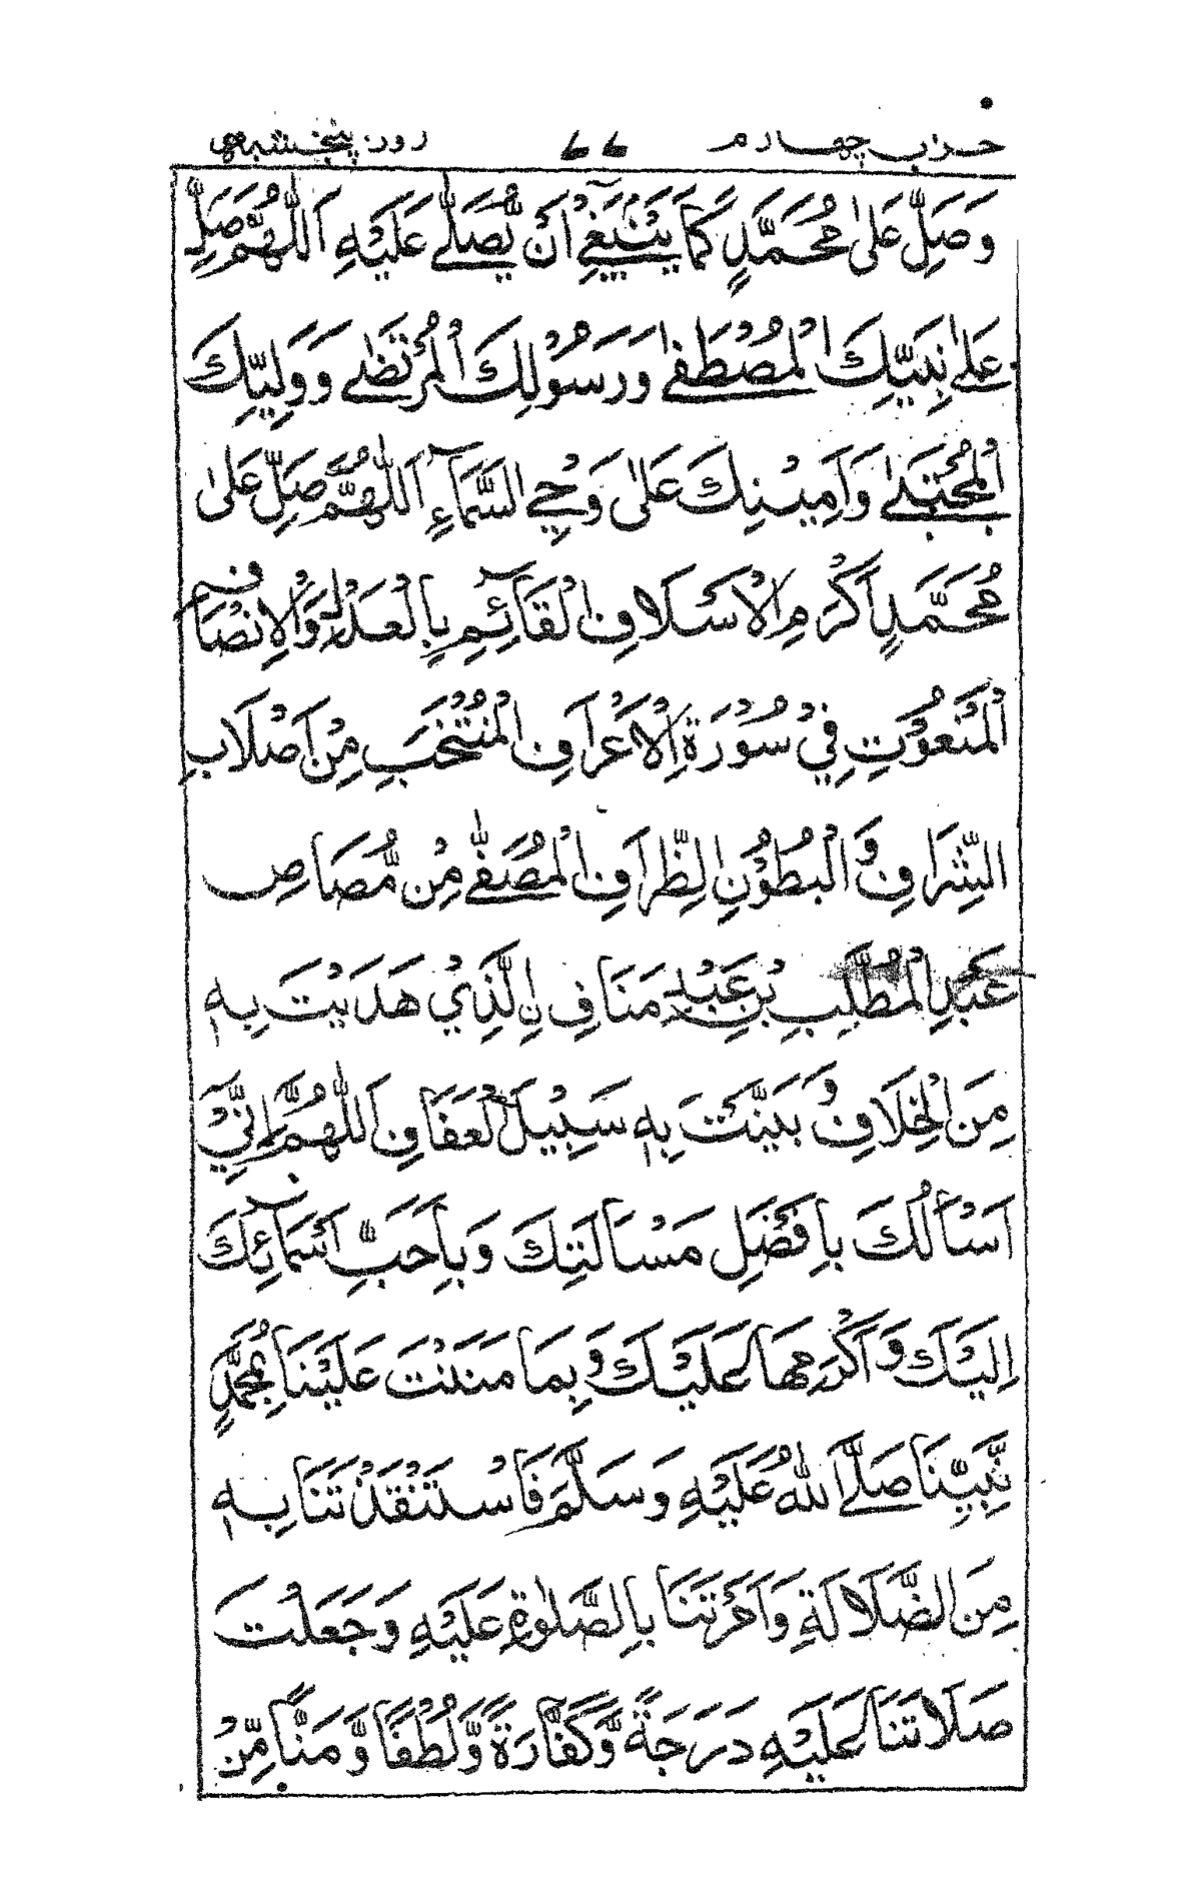 حزب چهارم ۶۶ روز پنجشنبهی
وَصَلِّ عَلٰی مُحَمَّدٍ كَمَا يَنْۢبَغِیْ اَنْ يُّصَلّٰی عَلَيْهِ اَللّٰهُمَّ صَلِّ
عَلٰی نَبِيِّكَ الْمُصْطَفٰی وَرَسُوْلِكَ الْمُرْتَضٰی وَوَلِيِّكَ
الْمُجْتَبٰی وَاَمِيْنِكَ عَلٰی وَحْیِ السَّمَآءِ اَللّٰهُمَّ صَلِّ عَلٰی
مُحَمَّدٍ اَكْرَمِ الْاَسْلَافِ الْقَآئِمِ بِالْعَدْلِ وَالْاِنْصَافِ
الْمَنْعُوْتِ فِیْ سُوْرَةِ الْاَعْرَافِ الْمُنْتَخَبِ مِنْ اَصْلَابِ
الشِّرَافِ وَالْبُطُوْنِ الظِّرَافِ الْمُصَفّٰی مِنْ مُّصَاصِ
عَبْدِ الْمُطَّلِبِ بْنِ عَبْدِ مَنَافِ نِ الَّذِیْ هَدَيْتَ بِهٖ
مِنَ الْخِلَافِ وَبَيَّنْتَ بِهٖ سَبِيْلَ الْعَفَافِ اَللّٰهُمَّ اِنِّیْ
اَسْاَلُكَ بِاَفْضَلِ مَسْاَلَتِكَ وَبِاَحَبِّ اَسْمَآئِكَ
اِلَيْكَ وَاَكْرَمِهَا عَلَيْكَ وَبِمَا مَنَنْتَ عَلَيْنَا بِمُحَمَّدٍ
نَّبِيِّنَا صَلَّی اللّٰهُ عَلَيْهِ وَسَلَّمَ فَاسْتَنْقَذْتَنَا بِهٖ
مِنَ الضَّلَالَةِ وَاَمَرْتَنَا بِالصَّلٰوةِ عَلَيْهِ وَجَعَلْتَ
صَلَاتَنَا عَلَيْهِ دَرَجَةً وَّكَفَّارَةً وَّلُطْفًا وَّمَنًّا مِّنْ